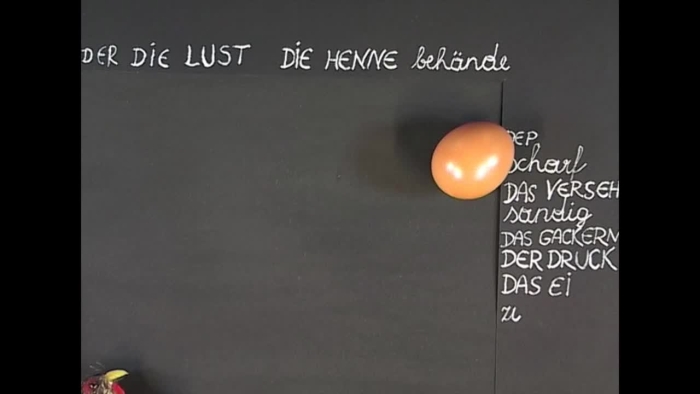 DER DIE LUST DIE HENNE behände
DER
scharf
DAS VERSEH
sandig
DAS GACKERN
DER DRUCK
DAS Ei
zu